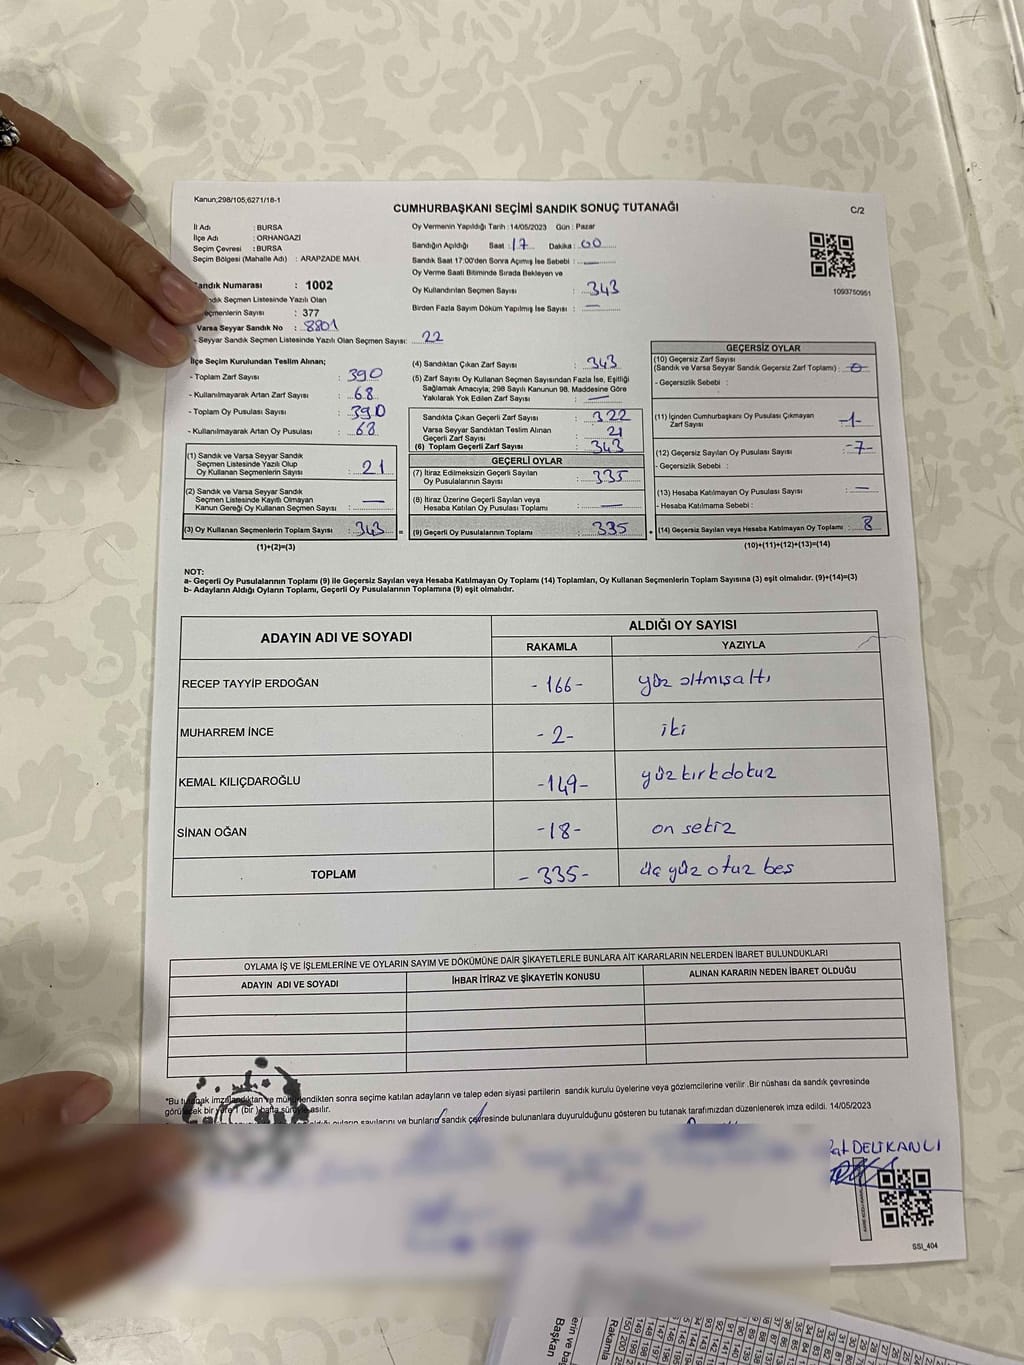 Kanun;298/105,6271/18-1
CUMHURBAŞKANI SEÇİMİ SANDIK SONUÇ TUTANAĞI
C/2
İl Adı : BURSA
İlçe Adı : ORHANGAZİ
Seçim Çevresi : BURSA
Seçim Bölgesi (Mahalle Adı) : ARAPZADE MAH.
Oy Vermenin Yapıldığı Tarih : 14/05/2023 Gün : Pazar
Sandığın Açıldığı Saat : 17 Dakika : 00
Sandık Saat 17:00'den Sonra Açımış İse Sebebi : —
Oy Verme Saati Bitiminde Sırada Bekleyen ve
Oy Kullandırılan Seçmen Sayısı : 343
Birden Fazla Sayım Döküm Yapılmış İse Sayısı : —
1093750951
andık Numarası : 1002
ndık Seçmen Listesinde Yazılı Olan
eçmenlerin Sayısı : 377
Varsa Seyyar Sandık No : 8801
- Seyyar Sandık Seçmen Listesinde Yazılı Olan Seçmen Sayısı: 22
İlçe Seçim Kurulundan Teslim Alınan;
- Toplam Zarf Sayısı : 390
- Kullanılmayarak Artan Zarf Sayısı : 68
- Toplam Oy Pusulası Sayısı : 390
- Kullanılmayarak Artan Oy Pusulası : 68
(1) Sandık ve Varsa Seyyar Sandık
Seçmen Listesinde Yazılı Olup
Oy Kullanan Seçmenlerin Sayısı : 21
(2) Sandık ve Varsa Seyyar Sandık
Seçmen Listesinde Kayıtlı Olmayan
Kanun Gereği Oy Kullanan Seçmen Sayısı : —
(3) Oy Kullanan Seçmenlerin Toplam Sayısı : 343 =
(1)+(2)=(3)
(4) Sandıktan Çıkan Zarf Sayısı : 343
(5) Zarf Sayısı Oy Kullanan Seçmen Sayısından Fazla İse, Eşitliği
Sağlamak Amacıyla; 298 Sayılı Kanunun 98. Maddesine Göre
Yakılarak Yok Edilen Zarf Sayısı : —
Sandıkta Çıkan Geçerli Zarf Sayısı : 322
Varsa Seyyar Sandıktan Teslim Alınan
Geçerli Zarf Sayısı : 21
(6) Toplam Geçerli Zarf Sayısı : 343
GEÇERLİ OYLAR
(7) İtiraz Edilmeksizin Geçerli Sayılan
Oy Pusulalarının Sayısı : 335
(8) İtiraz Üzerine Geçerli Sayılan veya
Hesaba Katılan Oy Pusulası Toplamı : —
(9) Geçerli Oy Pusulalarının Toplamı : 335 +
GEÇERSİZ OYLAR
(10) Geçersiz Zarf Sayısı
(Sandık ve Varsa Seyyar Sandık Geçersiz Zarf Toplamı) : 0
- Geçersizlik Sebebi :
(11) İçinden Cumhurbaşkanı Oy Pusulası Çıkmayan
Zarf Sayısı : -1-
(12) Geçersiz Sayılan Oy Pusulası Sayısı : -7-
- Geçersizlik Sebebi :
(13) Hesaba Katılmayan Oy Pusulası Sayısı : —
- Hesaba Katılmama Sebebi :
(14) Geçersiz Sayılan veya Hesaba Katılmayan Oy Toplamı : 8
(10)+(11)+(12)+(13)=(14)
NOT:
a- Geçerli Oy Pusulalarının Toplamı (9) ile Geçersiz Sayılan veya Hesaba Katılmayan Oy Toplamı (14) Toplamları, Oy Kullanan Seçmenlerin Toplam Sayısına (3) eşit olmalıdır. (9)+(14)=(3)
b- Adayların Aldığı Oyların Toplamı, Geçerli Oy Pusulalarının Toplamına (9) eşit olmalıdır.
ADAYIN ADI VE SOYADI
ALDIĞI OY SAYISI
RAKAMLA YAZIYLA
RECEP TAYYİP ERDOĞAN -166- yüz altmış altı
MUHARREM İNCE -2- iki
KEMAL KILIÇDAROĞLU -149- yüz kırk dokuz
SİNAN OĞAN -18- on sekiz
TOPLAM -335- üç yüz otuz beş
OYLAMA İŞ VE İŞLEMLERİNE VE OYLARIN SAYIM VE DÖKÜMÜNE DAİR ŞİKAYETLERLE BUNLARA AİT KARARLARIN NELERDEN İBARET BULUNDUKLARI
ADAYIN ADI VE SOYADI İHBAR İTİRAZ VE ŞİKAYETİN KONUSU ALINAN KARARIN NEDEN İBARET OLDUĞU
*Bu tutanak imzalandıktan ve mühürlendikten sonra seçime katılan adayların ve talep eden siyasi partilerin sandık kurulu üyelerine veya gözlemcilerine verilir .Bir nüshası da sandık çevresinde
görülecek bir yere 1 (bir) hafta süreyle asılır.
sayılarını ve bunların sandık çevresinde bulunanlara duyurulduğunu gösteren bu tutanak tarafımızdan düzenlenerek imza edildi. 14/05/2023
DELİKANLI
SSI_404
Başkan
Rakamla